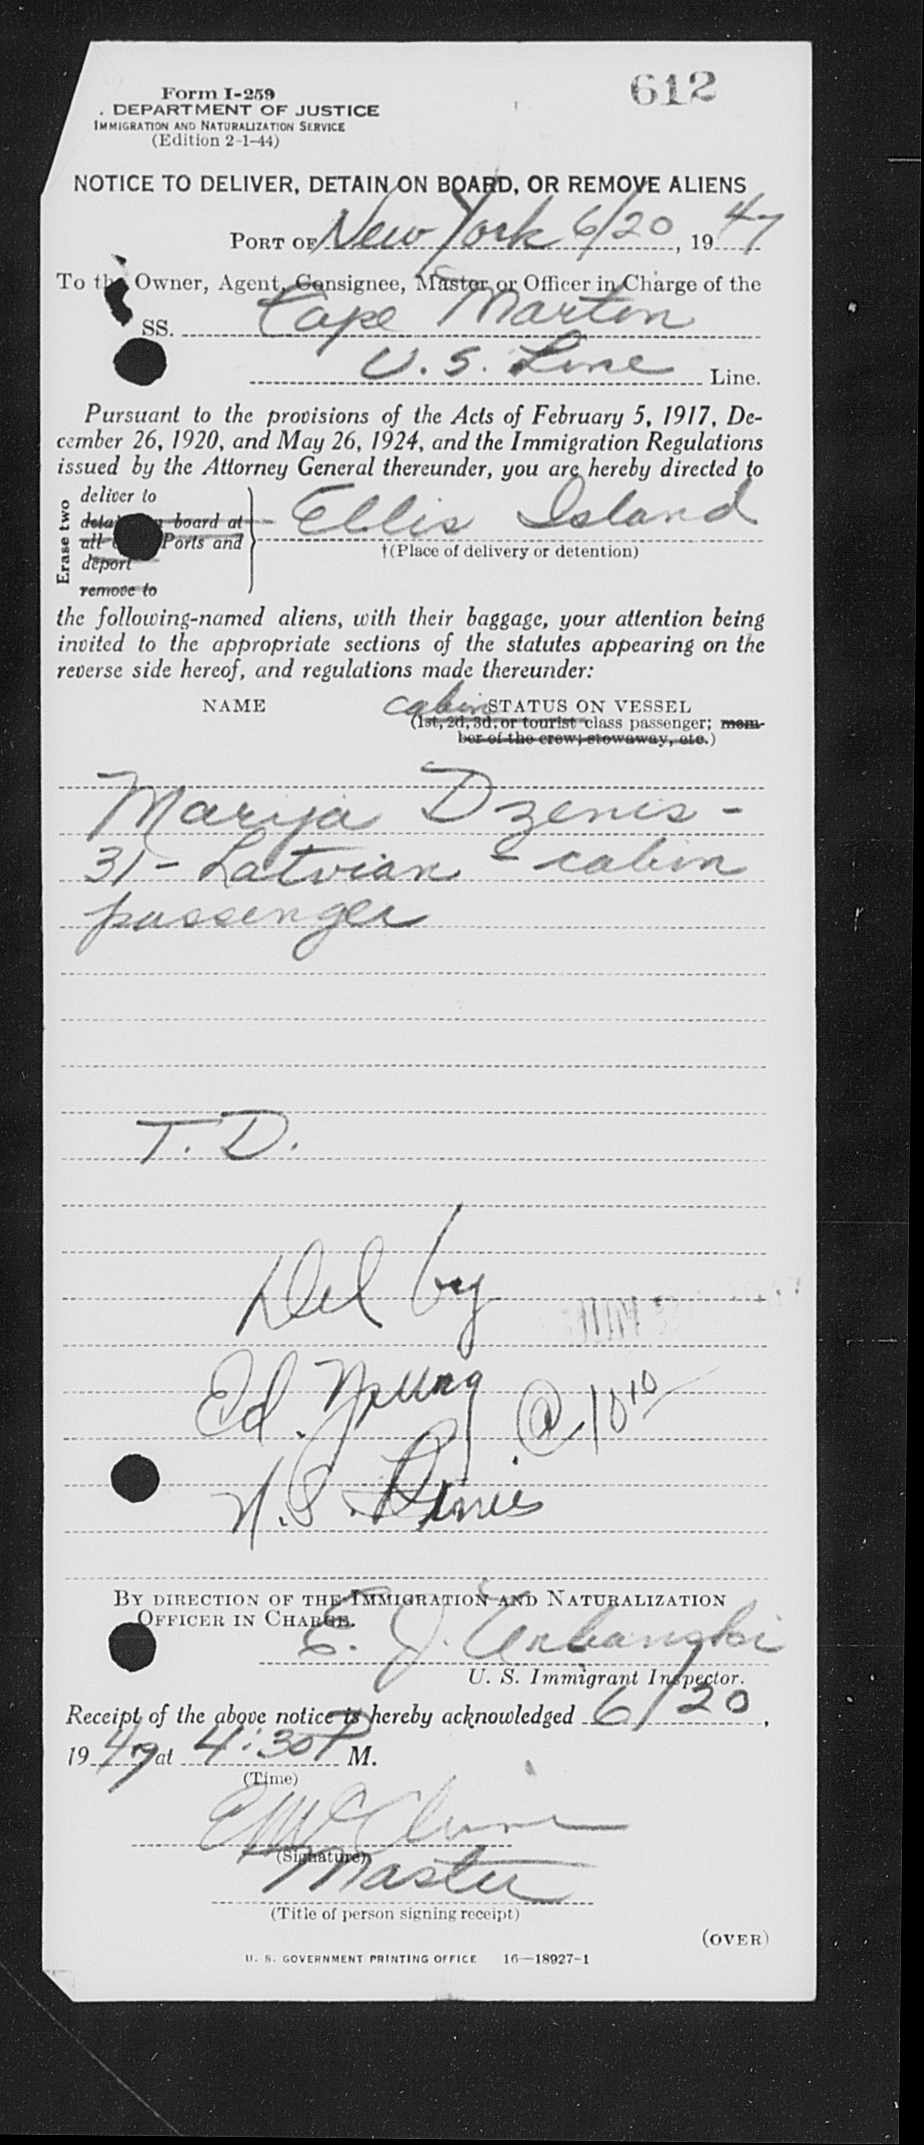 612
Form I-259
DEPARTMENT OF JUSTICE
IMMIGRATION AND NATURALIZATION SERVICE
(Edition 2-1-44)
NOTICE TO DELIVER, DETAIN ON BOARD, OR REMOVE ALIENS
PORT OF New York 6/20, 1947
To the Owner, Agent, Consignee, Master or Officer in Charge of the
SS. Cape Martin
U.S. Line Line.
Pursuant to the provisions of the Acts of February 5, 1917, De-
cember 26, 1920, and May 26, 1924, and the Immigration Regulations
issued by the Attorney General thereunder, you are hereby directed to
Erase two
deliver to
board at
all Ports and
deport
remove to
Ellis Island
†(Place of delivery or detention)
the following-named aliens, with their baggage, your attention being
invited to the appropriate sections of the statutes appearing on the
reverse side hereof, and regulations made thereunder:
NAME cabin STATUS ON VESSEL
(1st, 2d, 3d, or tourist class passenger; mem-
ber of the crew; stowaway, etc.)
Marija Dzenis -
31 - Latvian - cabin
passenger
T. D.
Del by
Ed. Young @ 10 10
BY DIRECTION OF THE IMMIGRATION AND NATURALIZATION
OFFICER IN CHARGE.
E. J. Urbanski
U. S. Immigrant Inspector.
Receipt of the above notice is hereby acknowledged 6/20,
1947 at 4:30 P M.
(Time)
(Signature)
Master
(Title of person signing receipt)
(OVER)
U. S. GOVERNMENT PRINTING OFFICE 16—18927-1